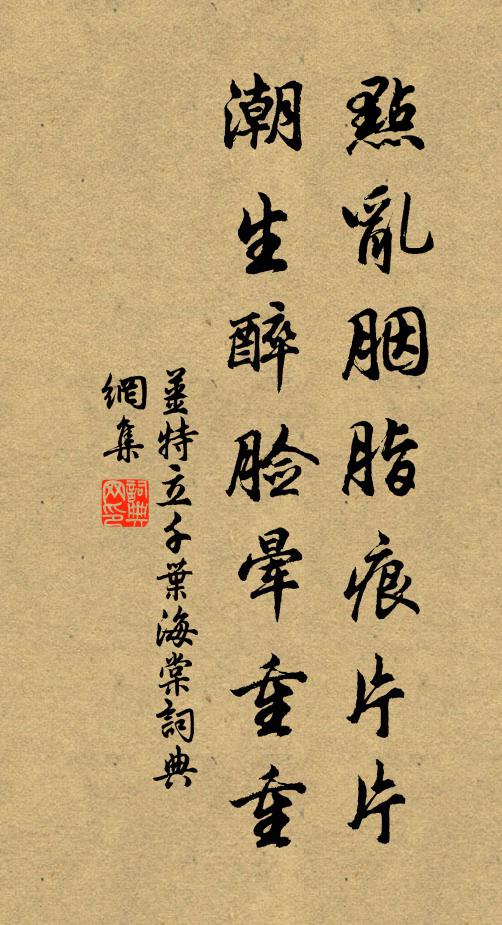 點亂胭脂痕片片
潮生醉臉暈重重
姜特立千葉海棠詞典
網集
詞典
网印